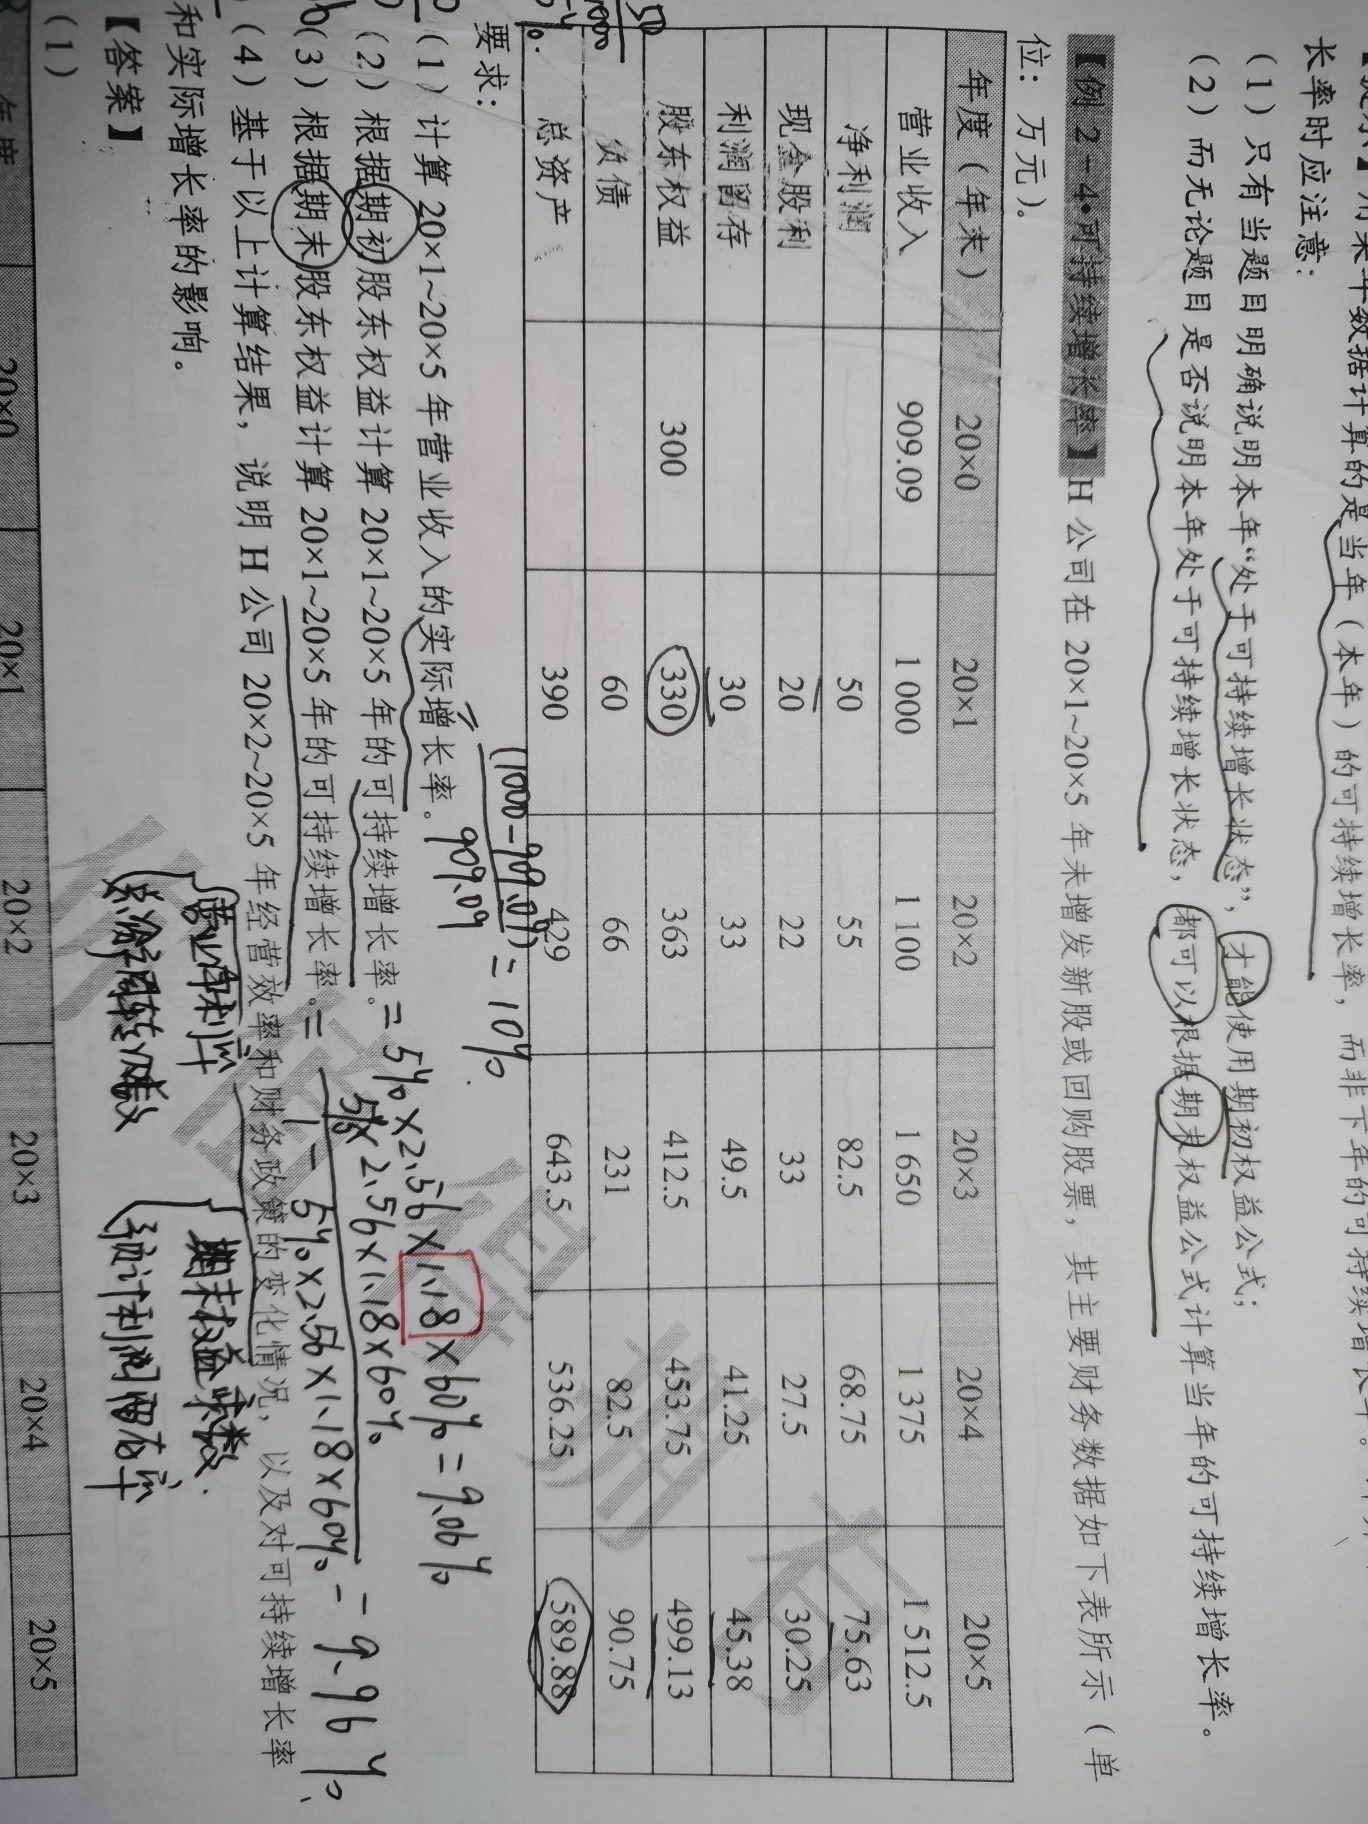 长率时应注意：
（1）只有当题目明确说明本年“处于可持续增长状态”，才能使用期初权益公式；
（2）而无论题目是否说明本年处于可持续增长状态，都可以根据期末权益公式计算当年的可持续增长率。
【例 2-4·可持续增长率】H 公司在 20×1~20×5 年未增发新股或回购股票，其主要财务数据如下表所示（单
位：万元）。
年度（年末） 20×0 20×1 20×2 20×3 20×4 20×5
营业收入 909.09 1 000 1 100 1 650 1 375 1 512.5
净利润 50 55 82.5 68.75 75.63
现金股利 20 22 33 27.5 30.25
利润留存 30 33 49.5 41.25 45.38
股东权益 300 330 363 412.5 453.75 499.13
负债 60 66 231 82.5 90.75
总资产 390 429 643.5 536.25 589.88
50
1000
要求：
(1000-909.09)
909.09 = 10%
（1）计算 20×1~20×5 年营业收入的实际增长率。
（2）根据期初股东权益计算 20×1~20×5 年的可持续增长率。 = 5%×2.56×1.18×60% = 9.06%
（3）根据期末股东权益计算 20×1~20×5 年的可持续增长率。 =
5%×2.56×1.18×60%
1-5%×2.56×1.18×60% = 9.96%
（4）基于以上计算结果，说明 H 公司 20×2~20×5 年经营效率和财务政策的变化情况，以及对可持续增长率
和实际增长率的影响。
营业净利率
期末权益乘数
总资产周转次数
预计利润留存率
【答案】
（1）
年度 20×0 20×1 20×2 20×3 20×4 20×5